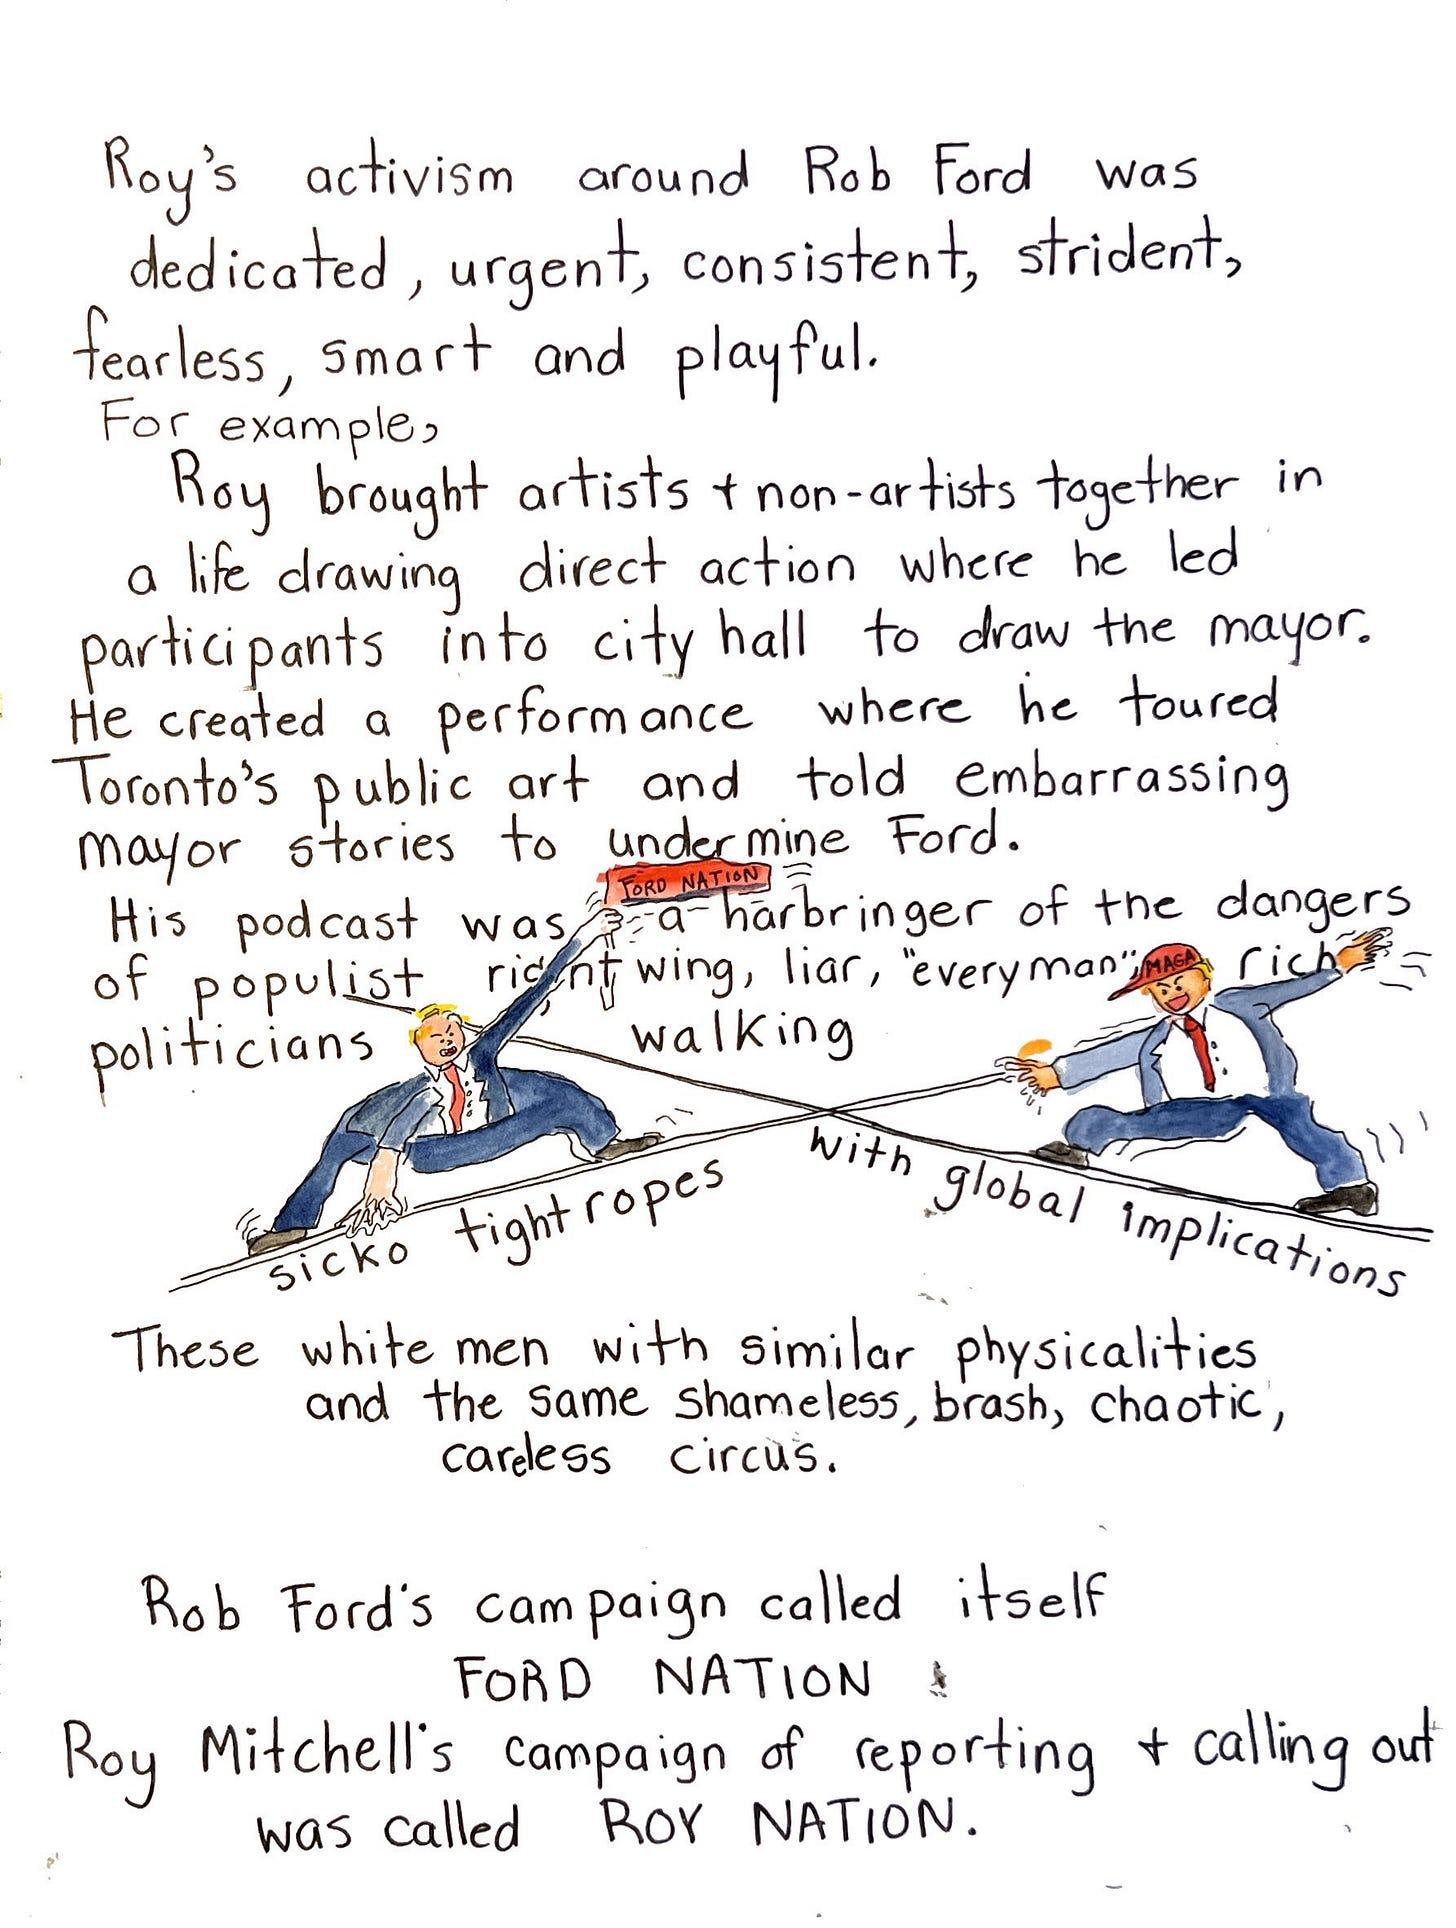 Roy's activism around Rob Ford was
dedicated, urgent, consistent, strident,
fearless, smart and playful.
For example,
Roy brought artists + non-artists together in
a life drawing direct action where he led
participants into city hall to draw the mayor.
He created a performance where he toured
Toronto's public art and told embarrassing
mayor stories to undermine Ford.
FORD NATION
His podcast was a harbringer of the dangers
of populist right wing, liar, "everyman", rich
MAGA
politicians walking
sicko tightropes
with global implications
These white men with similar physicalities
and the same shameless, brash, chaotic,
careless circus.
Rob Ford's campaign called itself
FORD NATION
Roy Mitchell's campaign of reporting + calling out
was called ROY NATION.